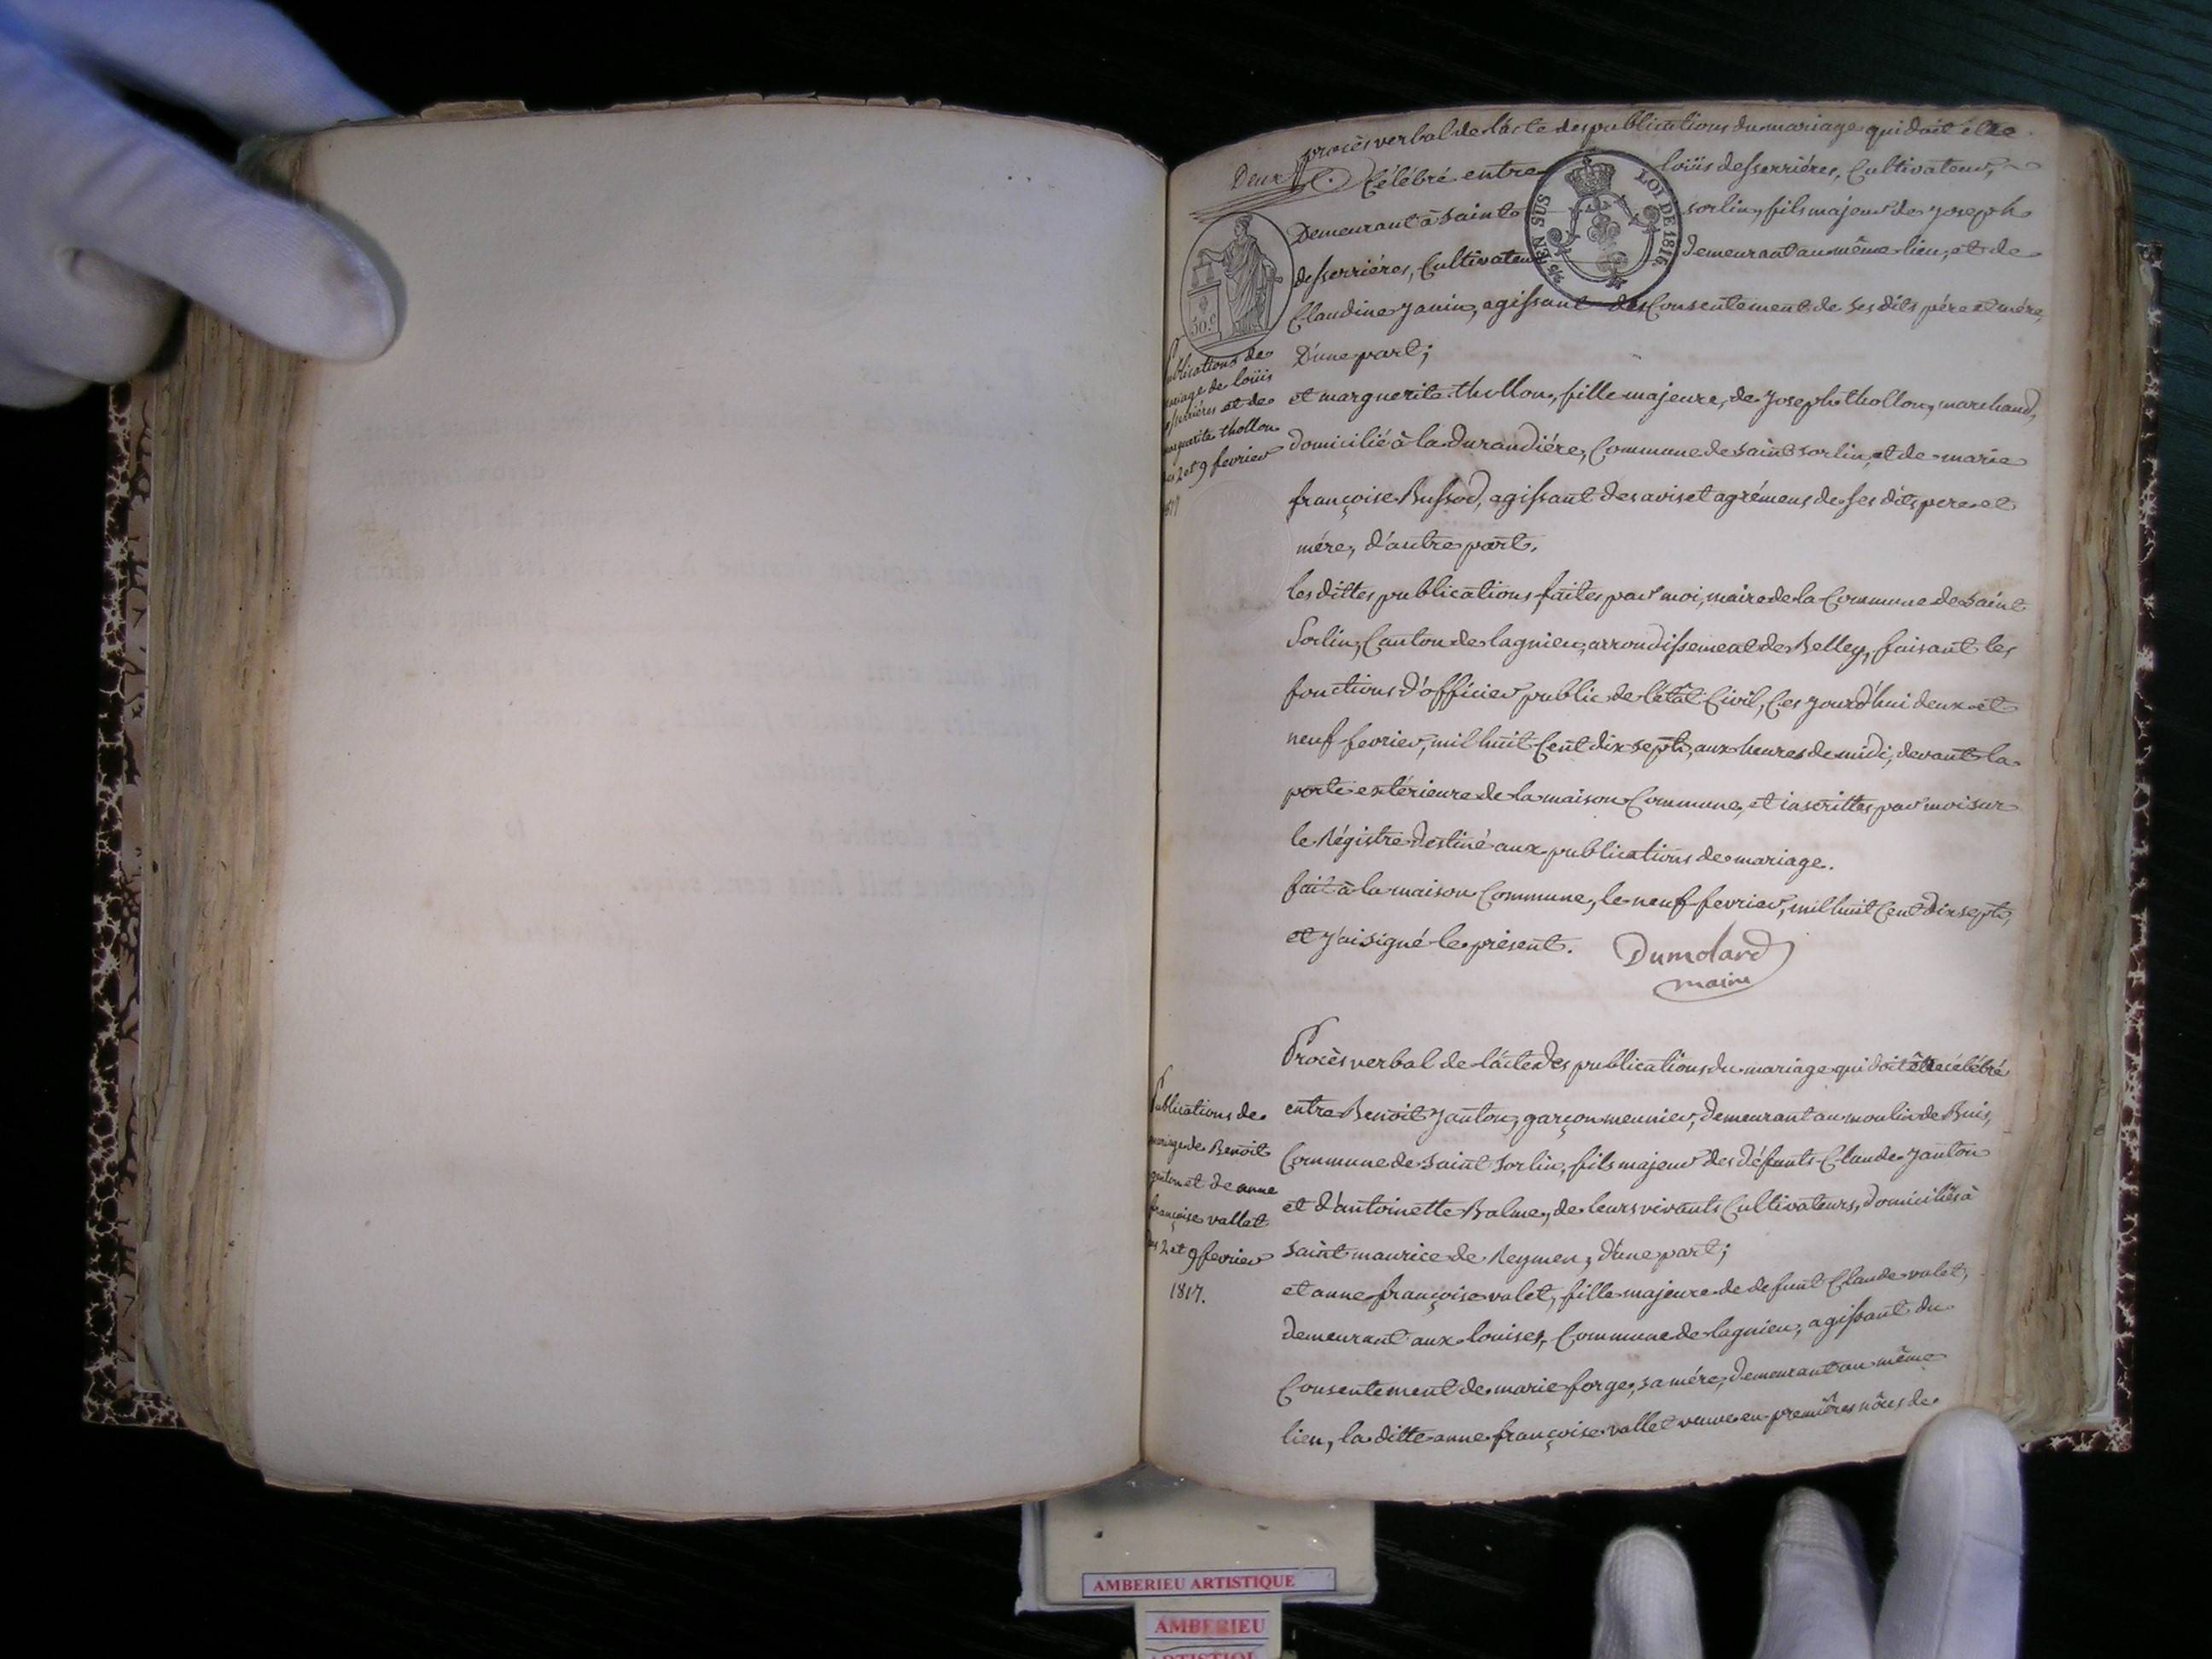 Deux
procès verbal de l'acte des publications du mariage qui doit être
Célébré entre loüis desserriéres, Cultivateur,
Demeurant à saint sorlin, fils majeur de joseph
desserriéres, Cultivateur demeurant au même lieu, et de
Claudine janin, agissant des Consentement de ses dits pére et mére,
D'une part;
et marguerite thollon, fille majeure, de joseph thollon, marchand,
domicilié à la durandiére, Commune de saint sorlin, et de marie
françoise Bussod, agissant des avis et agrémens de ses dits pere et
mére, d'autre part.
les dittes publications faites par moi, maire de la Commune de saint
Sorlin, Canton de lagnieu, arrondissement de Belley, faisant les
fonctions d'officier public de l'état Civil, Ces jourd'hui deux et
neuf fevrier, mil huit Cent dix sept, aux heures de midi, devant la
porte extérieure de la maison Commune, et inscrittes par moi sur
le Régistre destiné aux publications de mariage.
fait à la maison Commune, le neuf fevrier, mil huit Cent dix sept,
et j'ai signé le présent. Dumolard
maire
LOI DE 1816.
EN SUS
50.c
ublications de
riage de loüis
sserriéres et de
rguerite thollon
es 2 et 9 fevrier
1817
Procès verbal de l'acte des publications du mariage qui doit être célébré
entre Benoit janton, garçon meunier, demeurant au moulin de Buis,
Commune de saint Sorlin, fils majeur des défunts Claude janton
et d'antoinette Balme, de leurs vivants Cultivateurs, domiciliés à
saint maurice de Reymen, d'une part;
et anne françoise valet, fille majeure de defunt Claude valet,
demeurant aux louises, Commune de lagnieu, agissant du
Consentement de marie forge, sa mére, demeurant au même
lien, la ditte anne françoise vallet veuve en premiêres nôces de
Publications de
mariage de Benoit
janton et de anne
françoise vallet
es 2 et 9 fevrier
1817.
AMBERIEU ARTISTIQUE
AMBERIEU
ARTISTIQUE